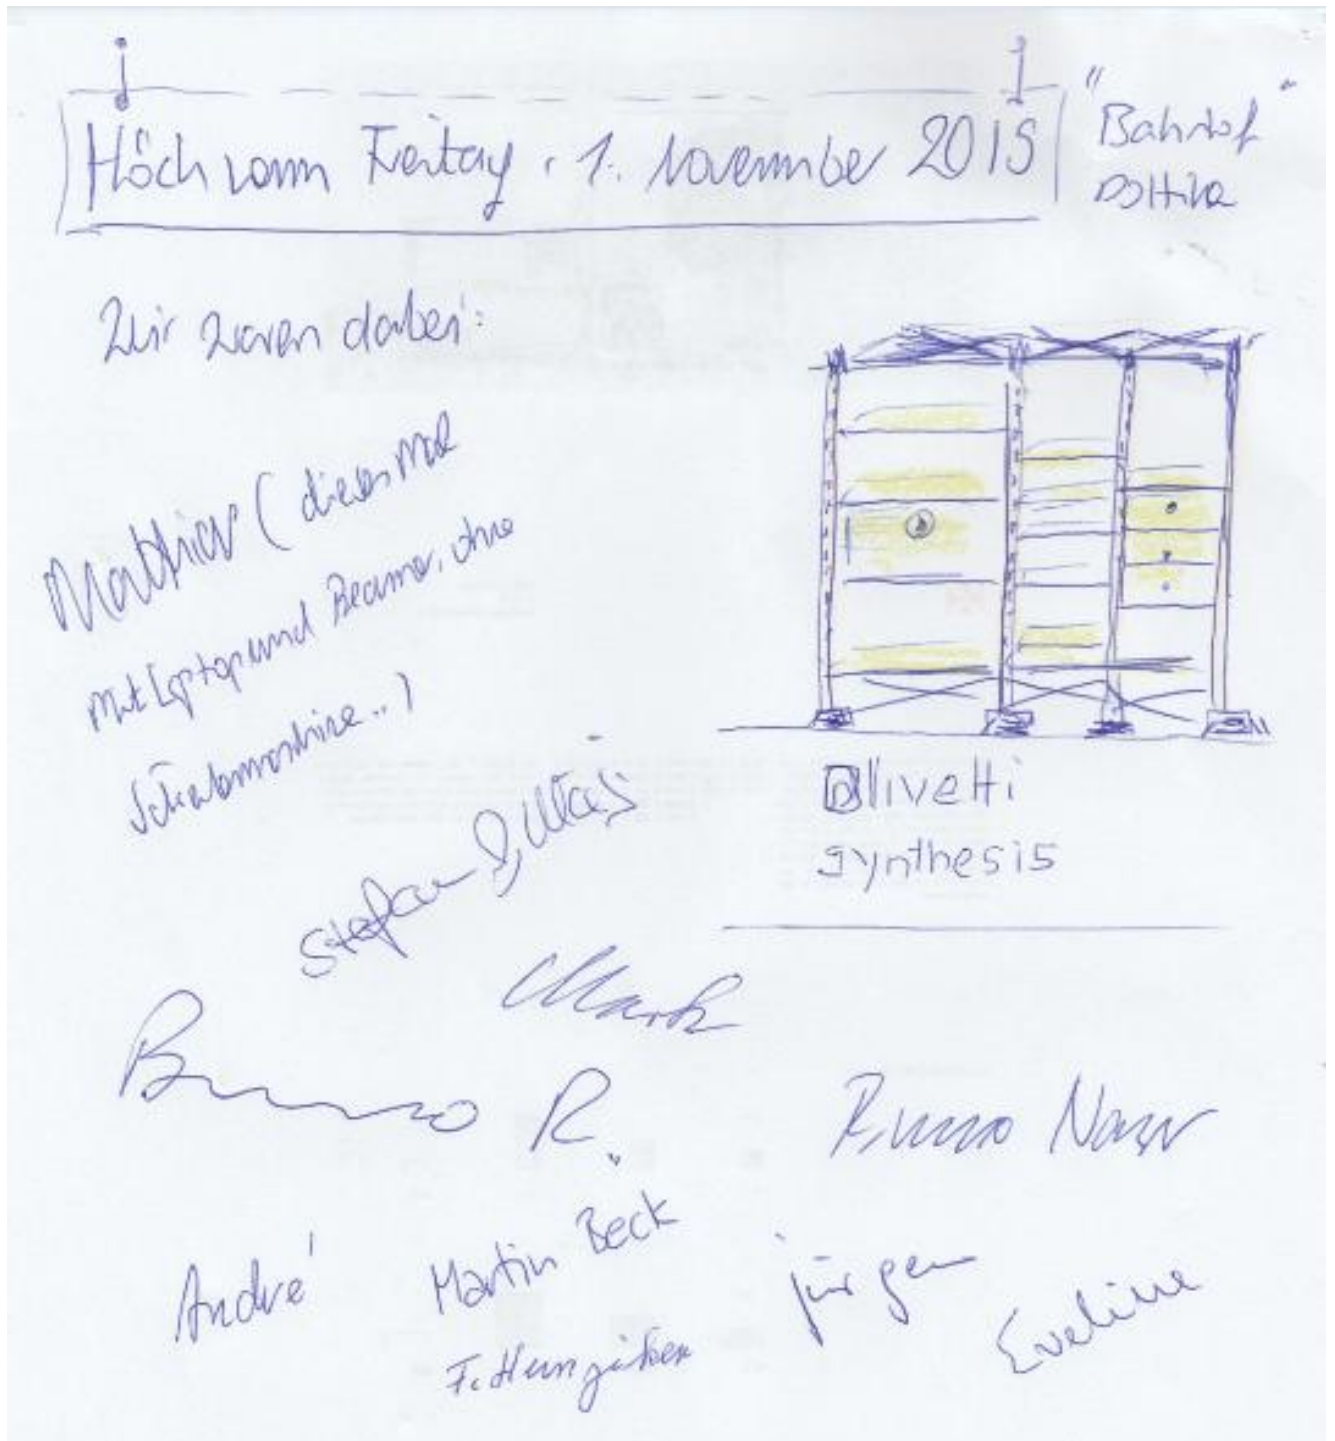 Höck vom Freitag, 1. November 2019
"Bahnhof"
Wir waren dabei:
(dieses Mal
mit Laptop und Beamer, ohne
Schreibmaschine..)
Olivetti
synthesis
Stefan
Mark
Bruno R.
Bruno
André
Martin Beck
Jürgen
Eveline